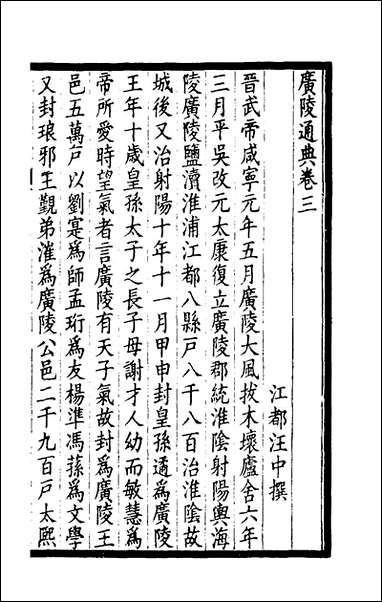 廣陵通典卷三
江都汪中撰
晉武帝咸寧元年五月廣陵大風拔木壞廬舍六年
三月平吳改元太康復立廣陵郡統淮陰射陽輿海
陵廣陵鹽瀆淮浦江都八縣戶八千八百治淮陰故
城後又治射陽十年十一月甲申封皇孫遹爲廣陵
王年十歲皇孫太子之長子母謝才人幼而敏慧爲
帝所愛時望氣者言廣陵有天子氣故封爲廣陵王
邑五萬戶以劉寔爲師孟珩爲友楊準馮蓀爲文學
又封琅邪王覲弟漼爲廣陵公邑二千九百戶太熙